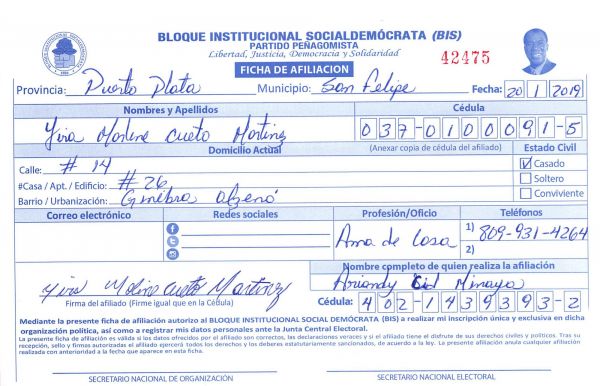 BLOQUE INSTITUCIONAL SOCIALDEMÓCRATA (BIS)
PARTIDO PEÑAGOMISTA
Libertad, Justicia, Democracia y Solidaridad
42475
FICHA DE AFILIACION
Provincia: Puerto Plata Municipio: San Felipe Fecha: 20/1/2019
Nombres y Apellidos Cédula
Yira Morlene Cueto Martinez 037-0100091-5
Domicilio Actual (Anexar copia de cédula del afiliado) Estado Civil
Calle: # 14 Casado
#Casa / Apt. / Edificio: # 26 Soltero
Barrio / Urbanización: Ginebra Conviviente
Correo electrónico Redes sociales Profesión/Oficio Teléfonos
Ama de Casa 1) 809-931-4264
2)
Nombre completo de quien realiza la afiliación
Yira Cueto Martinez Ariandy Cid Minaya
Firma del afiliado (Firme igual que en la Cédula) Cédula: 402-1439393-2
Mediante la presente ficha de afiliación autorizo al BLOQUE INSTITUCIONAL SOCIAL DEMÓCRATA (BIS) a realizar mi inscripción única y exclusiva en dicha
organización política, así como a registrar mis datos personales ante la Junta Central Electoral.
La presente ficha de afiliación es válida si los datos ofrecidos por el afiliado son correctos, las declaraciones veraces y si el afiliado tiene el disfrute de sus derechos civiles y políticos. Tras su
recepción, sello y firmas autorizadas el afiliado ejercerá todos los derechos y los deberes estatutariamente sancionados, de acuerdo a la ley. La presente afiliación anula cualquier afiliación
realizada con anterioridad a la fecha que aparece en esta ficha.
SECRETARIO NACIONAL DE ORGANIZACIÓN SECRETARIO NACIONAL ELECTORAL